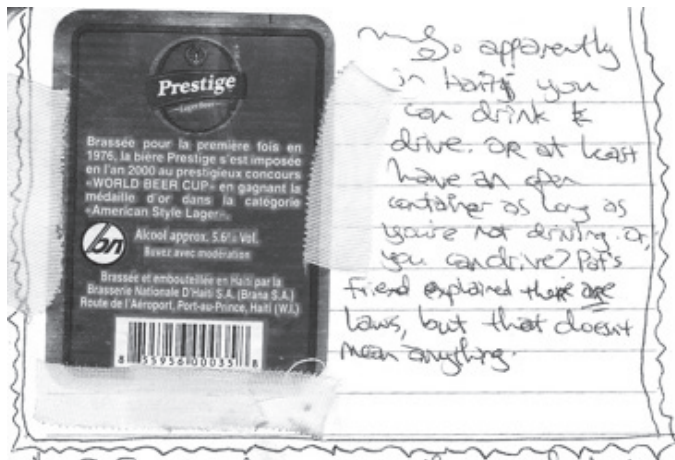 Prestige
Lager Beer
Brassée pour la première fois en
1976, la bière Prestige s'est imposée
en l'an 2000 au prestigieux concours
«WORLD BEER CUP» en gagnant la
médaille d'or dans la catégorie
«American Style Lager».
bn
Alcool approx. 5.6% Vol.
Buvez avec modération
Brassée et embouteillée en Haïti par la
Brasserie Nationale D'Haïti S.A. (Brana S.A.)
Route de l'Aéroport, Port-au-Prince, Haïti (W.I.)
8 55956 00035 8
So apparently
in Haiti you
can drink &
drive. OR at least
have an open
container as long as
you're not driving. Or,
you can drive? Pat's
Friend explained there are
Laws, but that doesn't
mean anything.